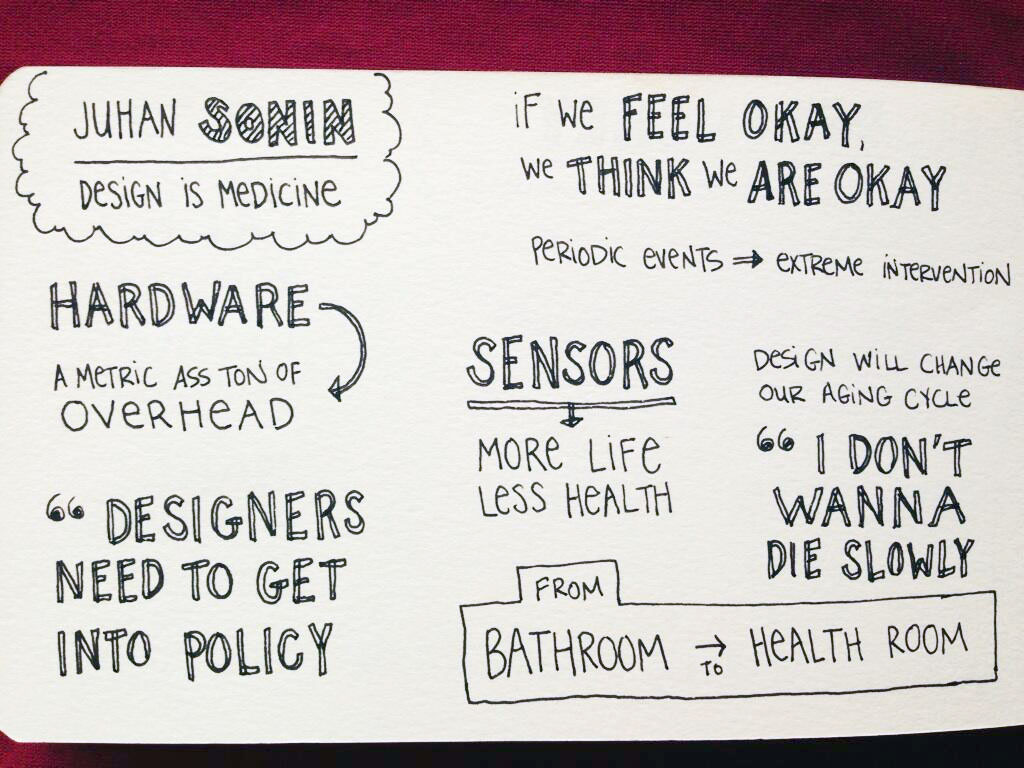 JUHAN SONIN
DESIGN IS MEDICINE
HARDWARE
A METRIC ASS TON OF
OVERHEAD
“ DESIGNERS
NEED TO GET
INTO POLICY
IF WE FEEL OKAY,
WE THINK WE ARE OKAY
PERIODIC EVENTS ⇒ EXTREME INTERVENTION
SENSORS
↓
MORE LIFE
LESS HEALTH
DESIGN WILL CHANGE
OUR AGING CYCLE
“ I DON'T
WANNA
DIE SLOWLY
FROM
BATHROOM → TO HEALTH ROOM